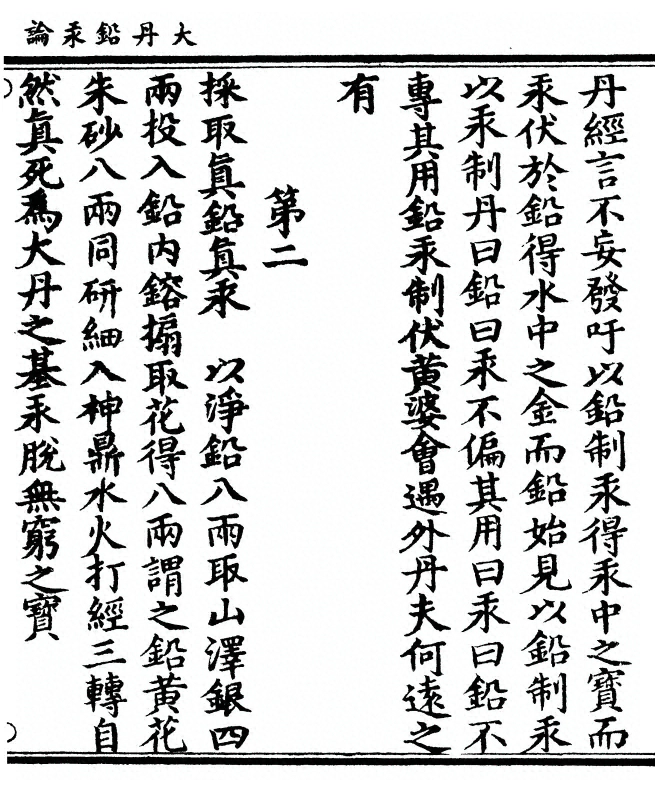 大丹鉛汞論
丹經言不妄發吁以鉛制汞得汞中之寶而
汞伏於鉛得水中之金而鉛始見以鉛制汞
以汞制丹曰鉛曰汞不偏其用曰汞曰鉛不
專其用鉛汞制伏黃婆會遇外丹夫何遠之
有
第二
採取眞鉛眞汞　以淨鉛八兩取山澤銀四
兩投入鉛內鎔搧取花得八兩謂之鉛黃花
朱砂八兩同研細入神鼎水火打經三轉自
然眞死爲大丹之基汞脫無窮之寶